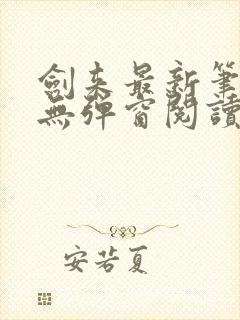 劍来最新筆
無彈窗閱讀
安若夏